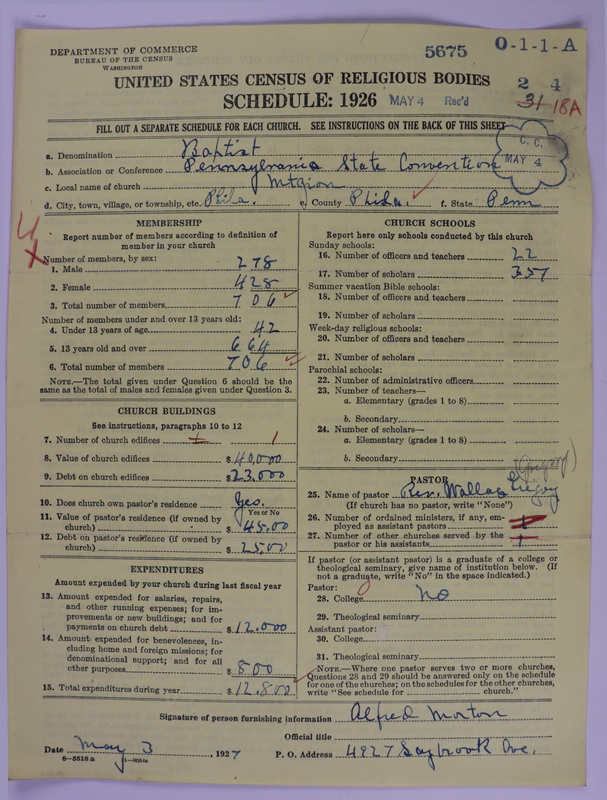 DEPARTMENT OF COMMERCE
BUREAU OF THE CENSUS
WASHINGTON
5675 O-1-1-A
UNITED STATES CENSUS OF RELIGIOUS BODIES
2 4
SCHEDULE: 1926 MAY 4 Rec'd
31 18A
FILL OUT A SEPARATE SCHEDULE FOR EACH CHURCH. SEE INSTRUCTIONS ON THE BACK OF THIS SHEET
C. C.
MAY 4
a. Denomination Baptist
b. Association or Conference Pennsylvania State Convention
c. Local name of church Mt Zion
d. City, town, village, or township, etc. Phila. e. County Phila. f. State Penn
MEMBERSHIP
Report number of members according to definition of
member in your church
Number of members, by sex:
1. Male 278
2. Female 428
3. Total number of members 706
Number of members under and over 13 years old:
4. Under 13 years of age 42
5. 13 years old and over 664
6. Total number of members 706
NOTE.—The total given under Question 6 should be the
same as the total of males and females given under Question 3.
CHURCH BUILDINGS
See instructions, paragraphs 10 to 12
7. Number of church edifices 1 1
8. Value of church edifices $40,000
9. Debt on church edifices $23.000
10. Does church own pastor's residence Yes.
Yes or No
11. Value of pastor's residence (if owned by
church) $4500
12. Debt on pastor's residence (if owned by
church) $2500
EXPENDITURES
Amount expended by your church during last fiscal year
13. Amount expended for salaries, repairs,
and other running expenses; for im-
provements or new buildings; and for
payments on church debt $12.000
14. Amount expended for benevolences, in-
cluding home and foreign missions; for
denominational support; and for all
other purposes $800
15. Total expenditures during year $12,800
CHURCH SCHOOLS
Report here only schools conducted by this church
Sunday schools:
16. Number of officers and teachers 22
17. Number of scholars 357
Summer vacation Bible schools:
18. Number of officers and teachers
19. Number of scholars
Week-day religious schools:
20. Number of officers and teachers
21. Number of scholars
Parochial schools:
22. Number of administrative officers
23. Number of teachers—
a. Elementary (grades 1 to 8)
b. Secondary
24. Number of scholars—
a. Elementary (grades 1 to 8)
b. Secondary
(Gregory)
PASTOR
25. Name of pastor Rev. Wallas Gregory
(If church has no pastor, write "None")
26. Number of ordained ministers, if any, em-
ployed as assistant pastors 1
27. Number of other churches served by the
pastor or his assistants 1
If pastor (or assistant pastor) is a graduate of a college or
theological seminary, give name of institution below. (If
not a graduate, write "No" in the space indicated.)
Pastor:
28. College No
29. Theological seminary
Assistant pastor:
30. College
31. Theological seminary
NOTE.—Where one pastor serves two or more churches,
Questions 28 and 29 should be answered only on the schedule
for one of the churches; on the schedules for the other churches,
write "See schedule for church."
Signature of person furnishing information Alfred Morton
Official title
Date May 3, 1927 P. O. Address 4927 Saybrook Ave.
8—5518 a